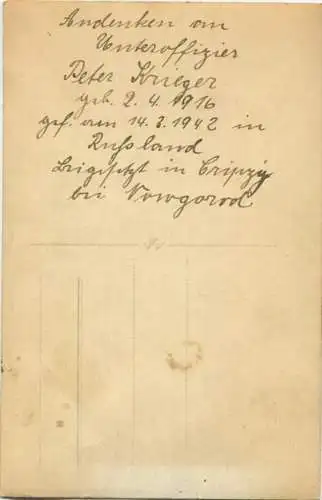 Andenken an
Unteroffizier
Peter Krieger
geb. 2.4.1916
gef. am 14.3.1942 in
Rußland
beigesetzt in
bei Nowgorod